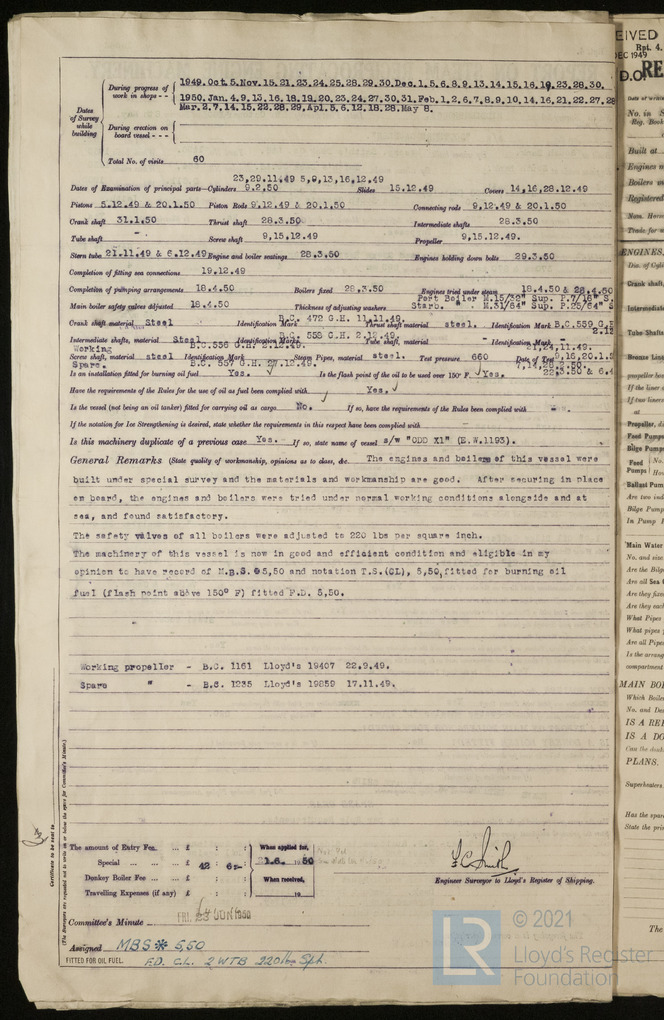 Dates of Survey while building
During progress of work in shops - -
1949.Oct.5.Nov.15.21.23.24.25.28.29.30.Dec.1.5.6.8.9.13.14.15.16.19.23.28.30.
1950.Jan.4.9.13.16.18.19.20.23.24.27.30.31.Feb.1.2.6.7.8.9.10.14.16.21.22.27.28
Mar.2.7.14.15.22.28.29.Apl.5.6.12.18.28.May 8.
During erection on board vessel - - -
Total No. of visits 60
23,29.11.49 5,9,13,16,12.49
Dates of Examination of principal parts—Cylinders 9.2.50 Slides 15.12.49 Covers 14,16,28.12.49
Pistons 5.12.49 & 20.1.50 Piston Rods 9.12.49 & 20.1.50 Connecting rods 9.12.49 & 20.1.50
Crank shaft 31.1.50 Thrust shaft 28.3.50 Intermediate shafts 28.3.50
Tube shaft - Screw shaft 9,15.12.49 Propeller 9,15.12.49.
Stern tube 21.11.49 & 6.12.49 Engine and boiler seatings 28.3.50 Engines holding down bolts 29.3.50
Completion of fitting sea connections 19.12.49
Completion of pumping arrangements 18.4.50 Boilers fixed 28.3.50 Engines tried under steam 18.4.50 & 28.4.50
Main boiler safety valves adjusted 18.4.50 Thickness of adjusting washers Port Boiler M.15/32" Sup. P.7/16" S.
Starb. " M.31/64" Sup. P.25/64" S
Crank shaft material Steel Identification Mark B.C. 472 G.H. 11.11.49. Thrust shaft material steel. Identification Mark B.C.559 G.H
2.12
Intermediate shafts, material Steel Identification Marks B.C. 558 G.H. 2.12.49. Tube shaft, material - Identification Mark -
Working B.C.556 G.H. 21,24,11.49.
Screw shaft, material steel Identification Mark B.C. 557 G.H. 27.12.49. Steam Pipes, material steel. Test pressure 660 Date of Test 9,16,20.1.5
Spare.
Is an installation fitted for burning oil fuel Yes. Is the flash point of the oil to be used over 150° F. Yes. 22.3.50 & 6.4
Have the requirements of the Rules for the use of oil as fuel been complied with Yes.
Is the vessel (not being an oil tanker) fitted for carrying oil as cargo No. If so, have the requirements of the Rules been complied with -
If the notation for Ice Strengthening is desired, state whether the requirements in this respect have been complied with
Is this machinery duplicate of a previous case Yes. If so, state name of vessel s/w "ODD XI" (E.W.1193).
General Remarks (State quality of workmanship, opinions as to class, &c. The engines and boilers of this vessel were
built under special survey and the materials and workmanship are good. After securing in place
on board, the engines and boilers were tried under normal working conditions alongside and at
sea, and found satisfactory.
The safety valves of all boilers were adjusted to 220 lbs per square inch.
The machinery of this vessel is now in good and efficient condition and eligible in my
opinion to have record of M.B.S. 5,50 and notation T.S.(CL), 5,50, fitted for burning oil
fuel (flash point above 150° F) fitted F.D. 5,50.
Working propeller - B.C. 1161 Lloyd's 19407 22.9.49.
Spare " - B.C. 1235 Lloyd's 19859 17.11.49.
Certificate to be sent to
(The Surveyors are requested not to write on or below the space for Committee's Minute.)
The amount of Entry Fee. ... £ : : When applied for,
Special ... ... ... £ 42 : 6:- 21.6. 1950
Donkey Boiler Fee ... ... £ : : When received,
Travelling Expenses (if any) £ : : 19
Engineer Surveyor to Lloyd's Register of Shipping.
Committee's Minute FRI. 23 JUN 1950
Assigned MBS* 5,50
F.D. CL. 2 WTB 220 lb Spt.
FITTED FOR OIL FUEL.
© 2021
LR
Lloyd's Register
Foundation
EIVED
Rpt. 4.
DEC 1949
D.O.
RE
No. in
Reg. Book
Built at
Engines
Boilers
Registered
Nom. Horse
Trade for
ENGINES,
Dia. of Cyl
Crank shaft,
Intermediate
Tube Shafts
Bronze Line
propeller
If the liner
If two liners
at
Propeller,
Feed Pumps
Bilge Pumps
Feed Pumps
Ballast Pum
Are two
Bilge Pump
In Pump
Main Water
No. and size
Are the Bilge
Are all Sea
Are they fixed
Are they each
What Pipes
What pipes
Are all Pipes
Is the
compartment
MAIN BOI
Which Boiler
No. and
IS A RE
IS A DO
Can the
PLANS.
Superheaters
Has the spare
State the
The